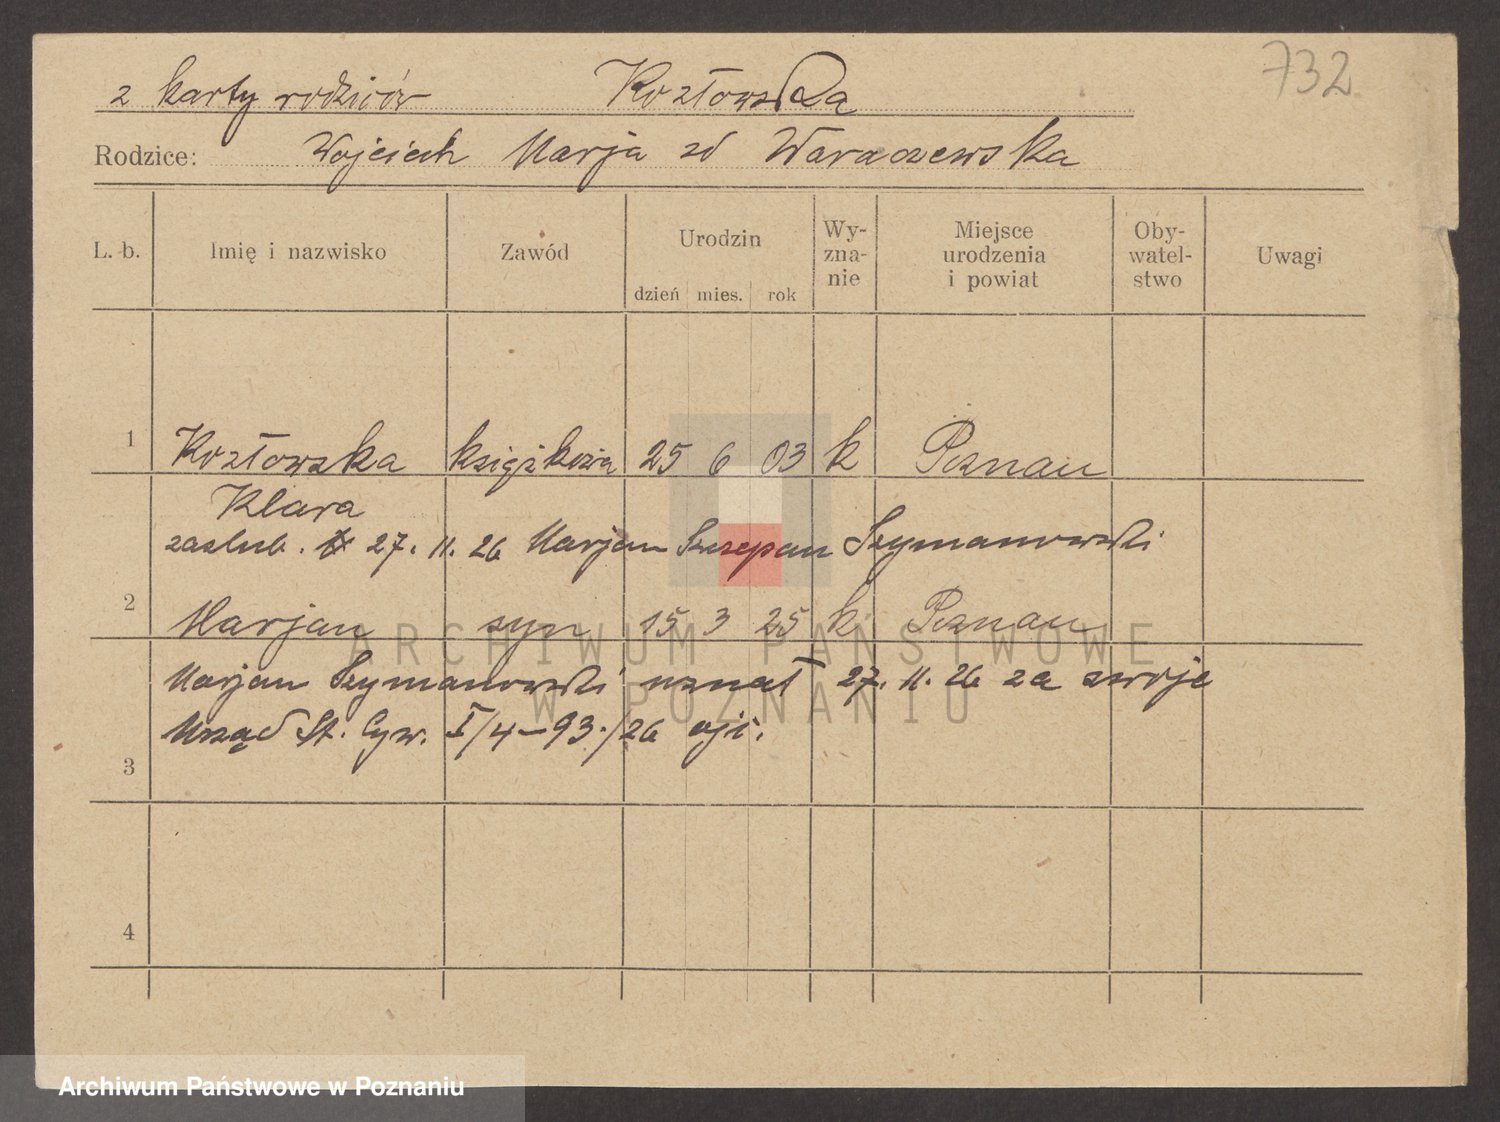 732
z karty rodziców Kozłowska
Rodzice: Wojciech Marja zd Waraczewska
L. b. Imię i nazwisko Zawód Urodzin Wy-zna-nie Miejsce urodzenia i powiat Oby-watel-stwo Uwagi
dzień mies. rok
1 Kozłowska książkowa 25 6 03 k Poznań
Klara
zaślub. 27. 11. 26 Marjan Szczepan Szymanowski
2 Marjan syn 15 3 25 k Poznań
Marjan Szymanowski uznał 27. 11. 26 za swoje
Urząd St. Cyw. I/4-93./26
3
4
ARCHIWUM PAŃSTWOWE
W POZNANIU
Archiwum Państwowe w Poznaniu